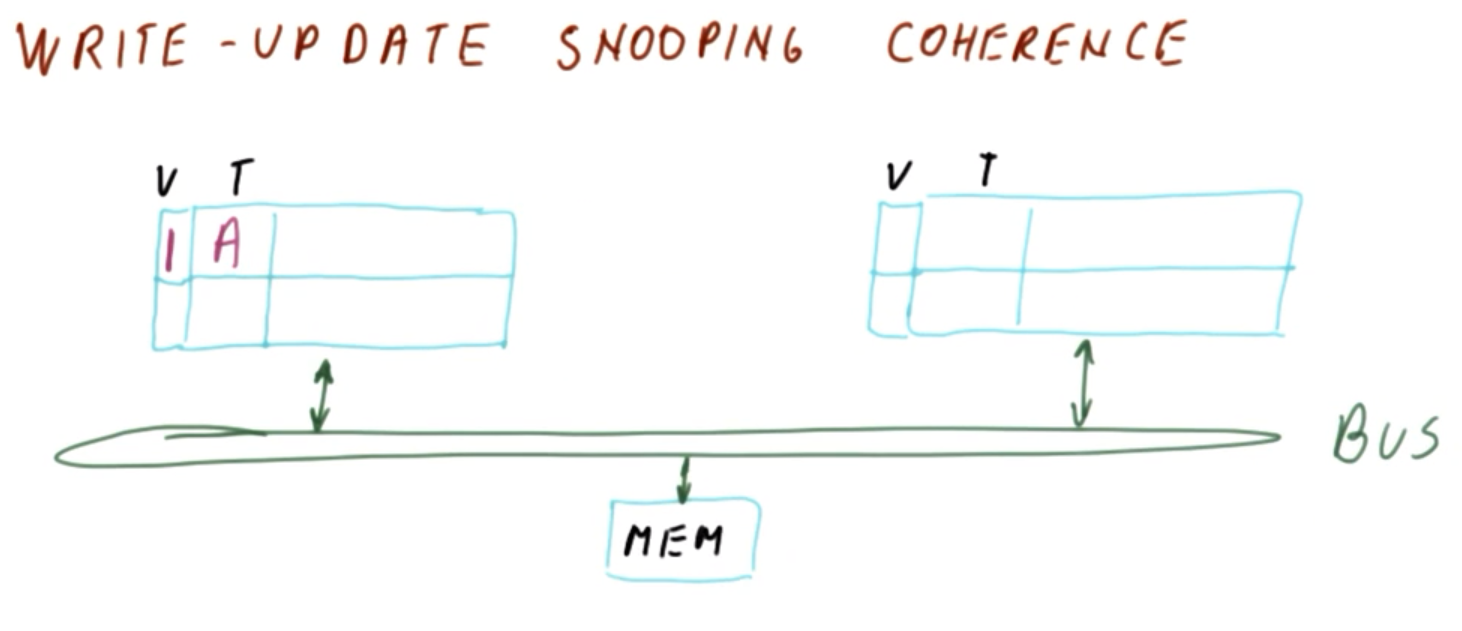 WRITE-UPDATE SNOOPING COHERENCE
V T V T
1 A
BUS
MEM